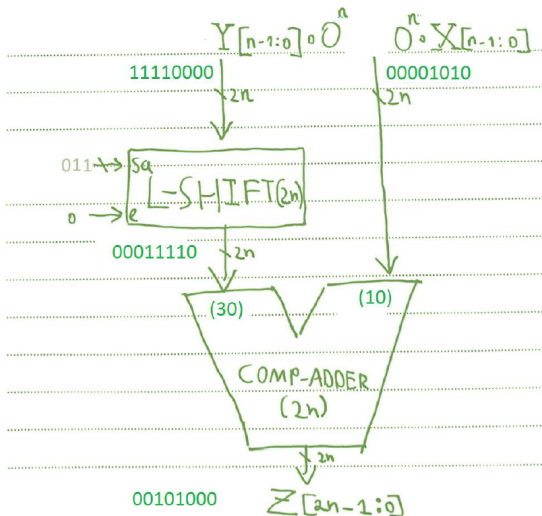 Y[n-1:0]∘0ⁿ 0ⁿ∘X[n-1:0]
11110000 00001010
2n 2n
011 sa
L-SHIFT(2n)
0 e
00011110 2n
(30) (10)
COMP-ADDER
(2n)
2n
00101000 Z[2n-1:0]